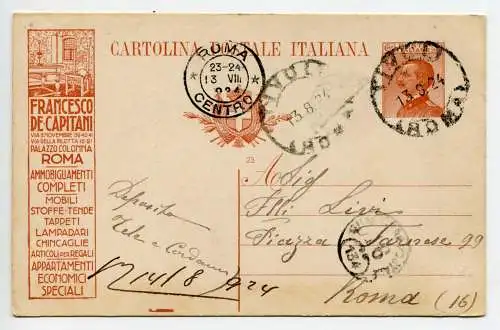 CARTOLINA POSTALE ITALIANA
ROMA
23-24
13 VIII
924
CENTRO
TIVOLI
13.8.24
(ROMA)
TIVOLI
13.8.24
(ROMA)
FRANCESCO
DE CAPITANI
VIA 4 NOVEMBRE
VIA DELLA PILOTTA
PALAZZO COLONNA
ROMA
AMMOBIGLIAMENTI
COMPLETI
MOBILI
STOFFE-TENDE
TAPPETI
LAMPADARI
CHINCAGLIE
ARTICOLI PER REGALI
APPARTAMENTI
ECONOMICI
SPECIALI
23
Deposito
Tele e Cordami
14/8 924
A Sig
F.lli Livi
Piazza Farnese 99
Roma (16)